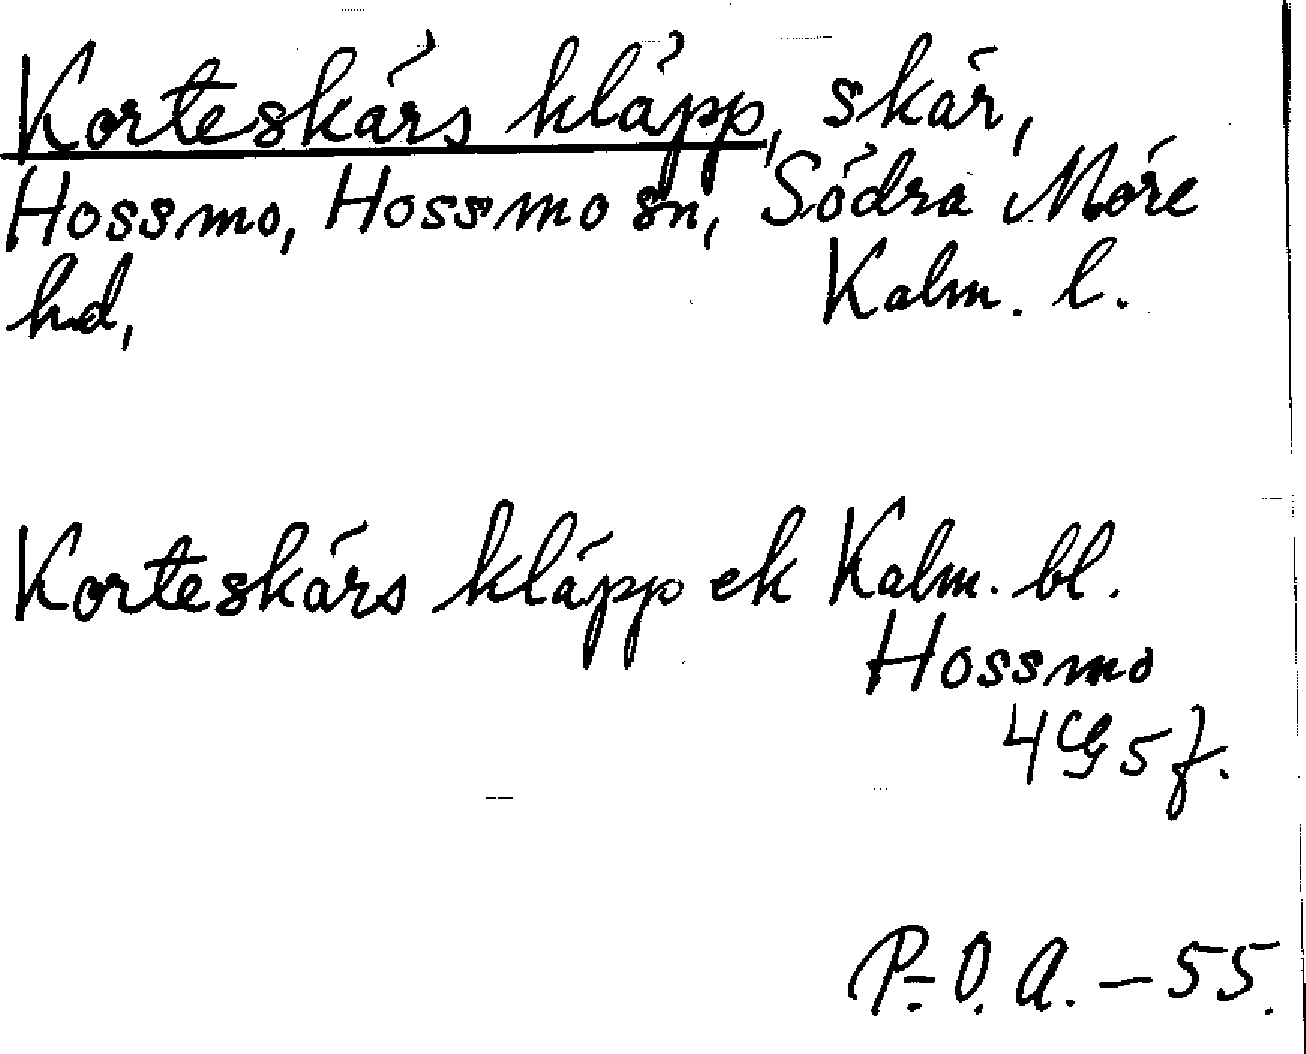 Korteskärs kläpp, skär,
Hossmo, Hossmo sn, Södra Möre
hd, Kalm. l.
Korteskärs kläpp ek Kalm. bl.
Hossmo
4G5f.
P.-O. A. – 55.